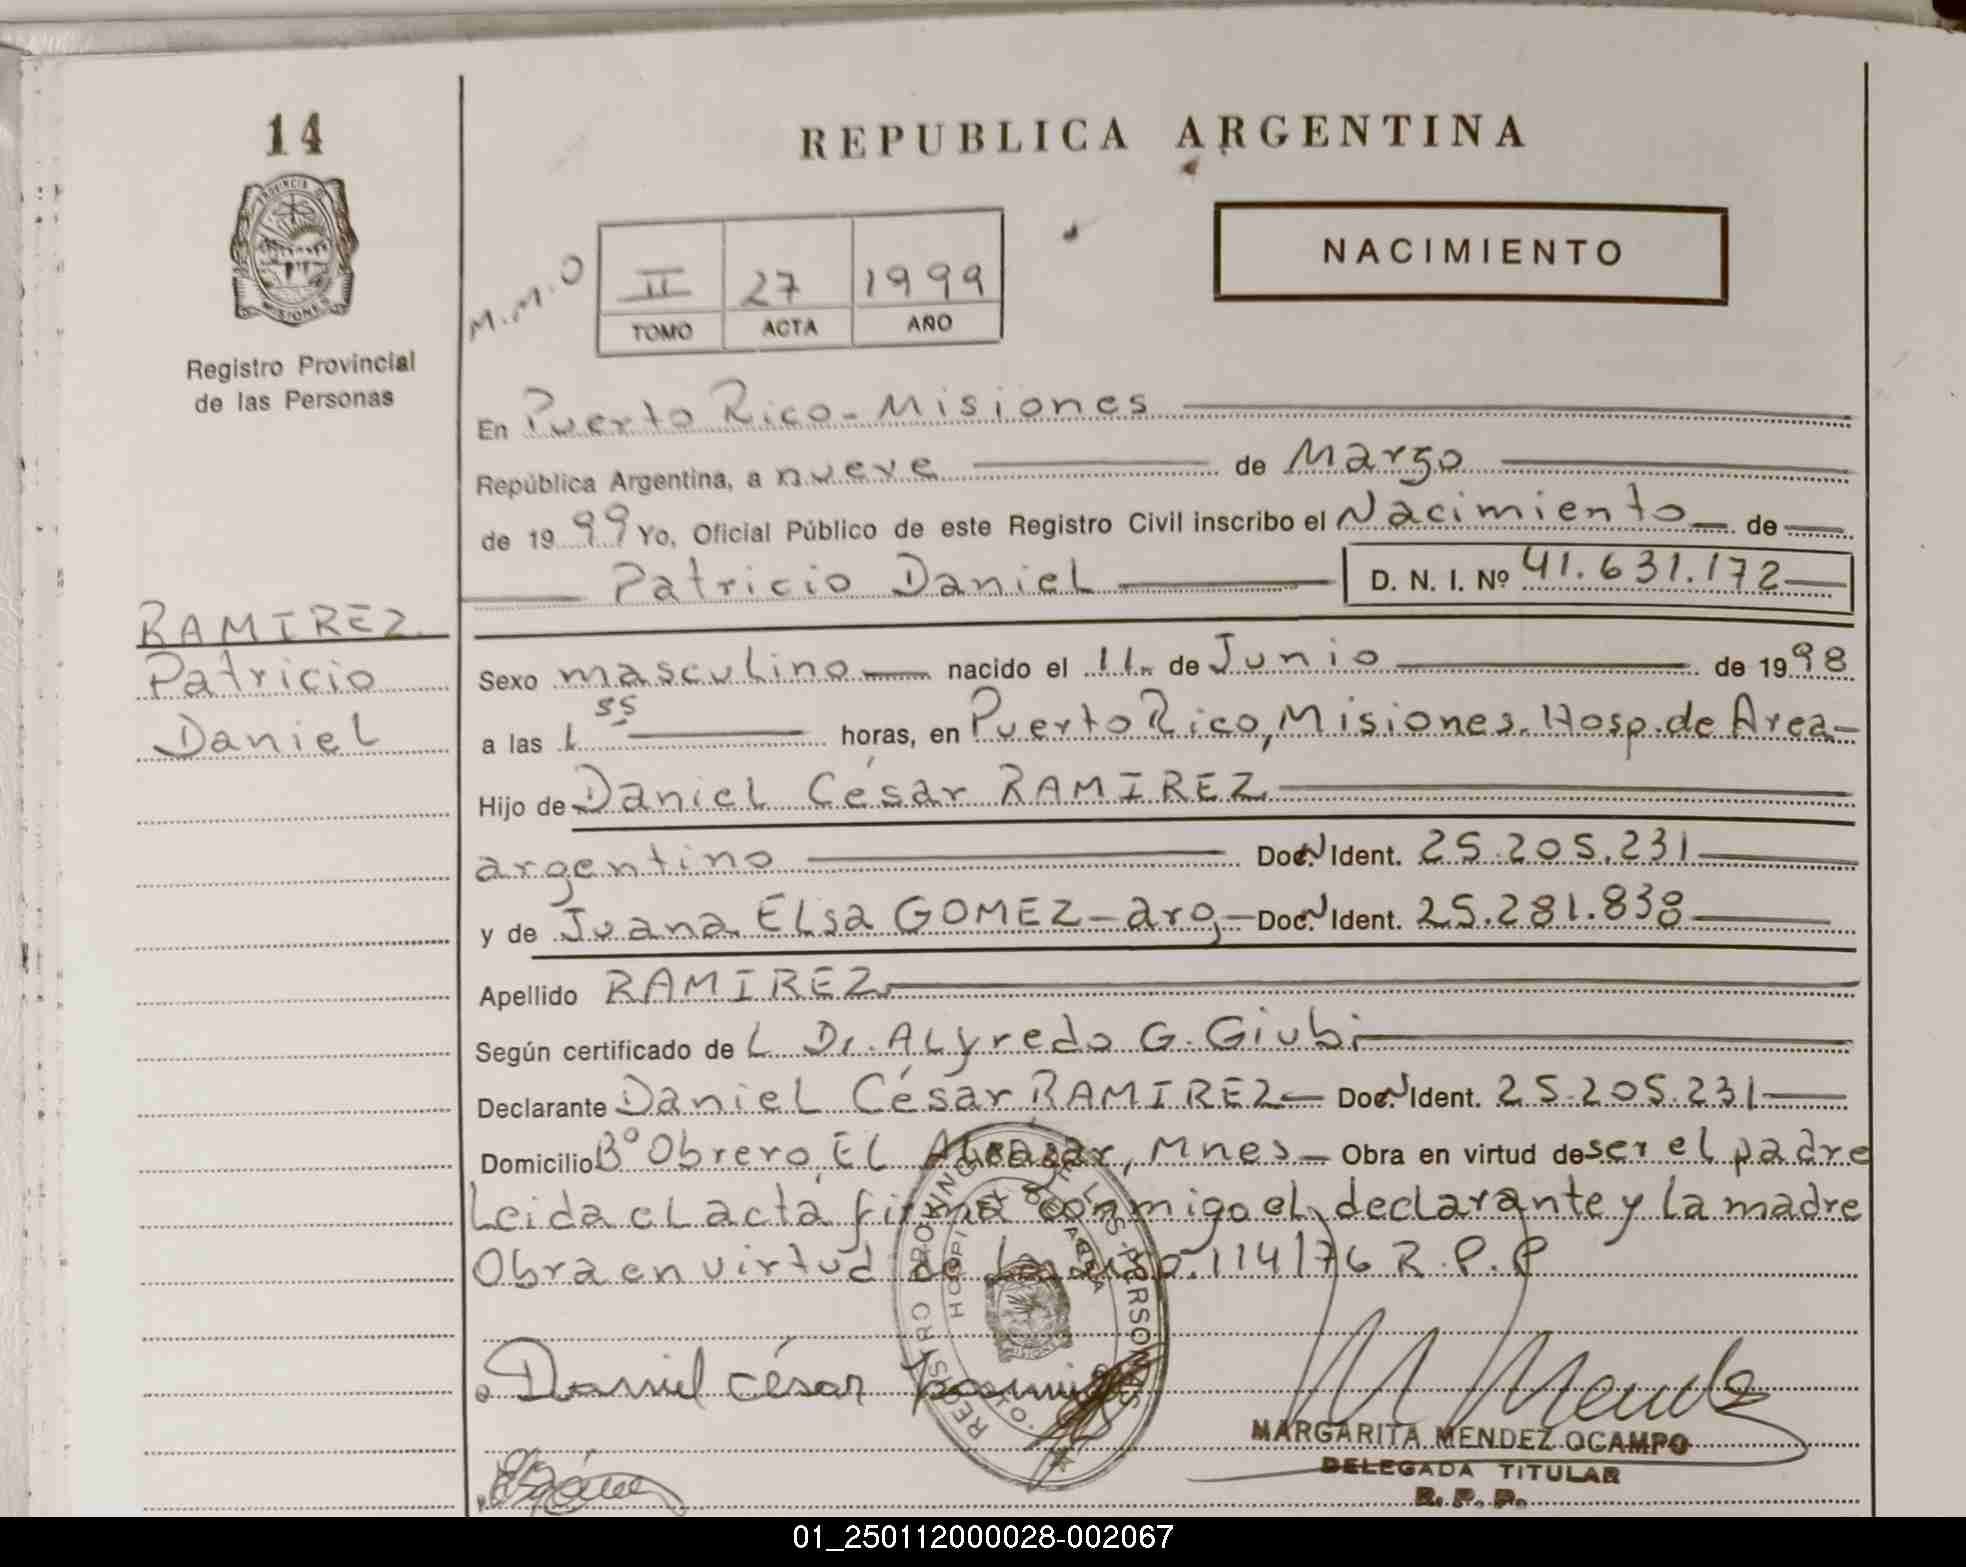 14
REPUBLICA ARGENTINA
NACIMIENTO
M.M.O
II 27 1999
TOMO ACTA AÑO
Registro Provincial
de las Personas
En Puerto Rico - Misiones
República Argentina, a nueve de Marzo
de 1999 Yo, Oficial Público de este Registro Civil inscribo el Nacimiento de
Patricio Daniel D. N. I. Nº 41.631.172
RAMIREZ
Patricio
Daniel
Sexo masculino nacido el 11 de Junio de 1998
a las 1 55 horas, en Puerto Rico, Misiones. Hosp. de Area
Hijo de Daniel César RAMIREZ
argentino Doc. Ident. 25.205.231
y de Juana Elsa GOMEZ - arg - Doc. Ident. 25.281.838
Apellido RAMIREZ
Según certificado de L Dr. Alfredo G. Giubi
Declarante Daniel César RAMIREZ Doc. Ident. 25.205.231
Domicilio Bº Obrero, El Alcázar, Mnes - Obra en virtud de ser el padre
Leida el acta firma conmigo el declarante y la madre
Obra en virtud de la Disp. 114/76 R.P.P
REGISTRO PROVINCIAL DE LAS PERSONAS
MISIONES
Daniel césar Ramirez
M Mende
MARGARITA MENDEZ OCAMPO
DELEGADA TITULAR
R. P. P.
01_250112000028-002067